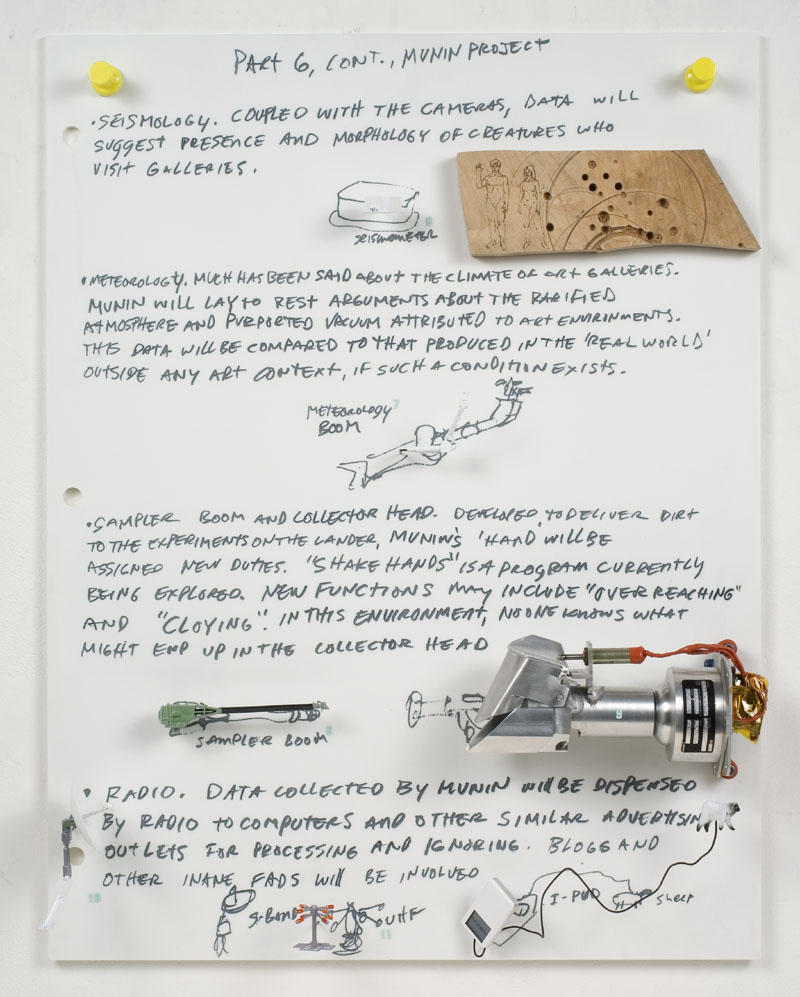 PART 6, CONT., MUNIN PROJECT
• SEISMOLOGY. COUPLED WITH THE CAMERAS, DATA WILL
SUGGEST PRESENCE AND MORPHOLOGY OF CREATURES WHO
VISIT GALLERIES.
6
SEISMOMETER
• METEOROLOGY. MUCH HAS BEEN SAID ABOUT THE CLIMATE OF ART GALLERIES.
MUNIN WILL LAY TO REST ARGUMENTS ABOUT THE RARIFIED
ATMOSPHERE AND PURPORTED VACUUM ATTRIBUTED TO ART ENVIRONMENTS.
THIS DATA WILL BE COMPARED TO THAT PRODUCED IN THE 'REAL WORLD'
OUTSIDE ANY ART CONTEXT, IF SUCH A CONDITION EXISTS.
METEOROLOGY 7
BOOM
• SAMPLER BOOM AND COLLECTOR HEAD. DEVELOPED TO DELIVER DIRT
TO THE EXPERIMENTS ON THE LANDER, MUNIN'S 'HAND WILL BE
ASSIGNED NEW DUTIES. "SHAKE HANDS" IS A PROGRAM CURRENTLY
BEING EXPLORED. NEW FUNCTIONS MAY INCLUDE "OVER REACHING"
AND "CLOYING". IN THIS ENVIRONMENT, NO ONE KNOWS WHAT
MIGHT END UP IN THE COLLECTOR HEAD
9
8
SAMPLER BOOM
• RADIO. DATA COLLECTED BY MUNIN WILL BE DISPENSED
BY RADIO TO COMPUTERS AND OTHER SIMILAR ADVERTISIN
OUTLETS FOR PROCESSING AND IGNORING. BLOGS AND
OTHER INANE FADS WILL BE INVOLVED
10
S-BAND
UHF
11
I-POD
SHEEP